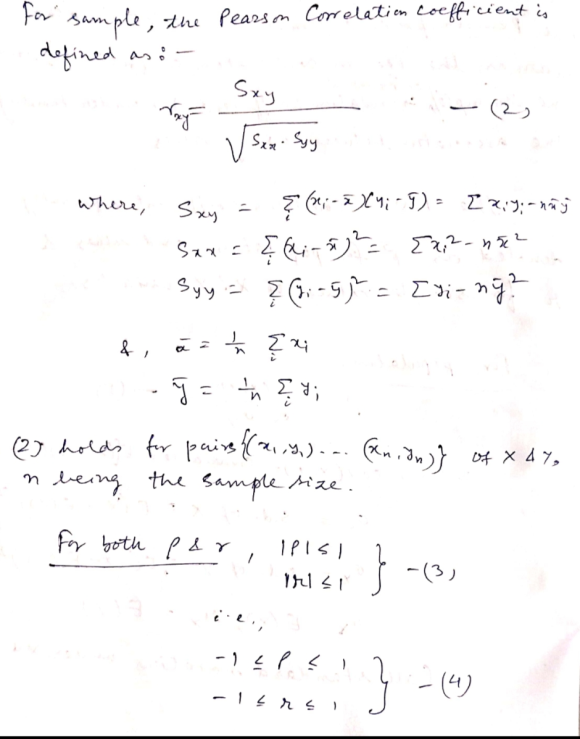 For sample, the Pearson Correlation coefficient is
defined as : —
r_xy = S_xy / √(S_xx . S_yy) — (2)
where, S_xy = Σ_i (x_i - x̄)(y_i - ȳ) = Σ x_i y_i - n x̄ ȳ
S_xx = Σ_i (x_i - x̄)² = Σ x_i² - n x̄²
S_yy = Σ_i (y_i - ȳ)² = Σ y_i - n ȳ²
&, x̄ = 1/n Σ_i x_i
- ȳ = 1/n Σ_i y_i
(2) holds for pairs {(x_1, y_1) --- (x_n, y_n)} of X & Y,
n being the sample size.
For both ρ & r, |ρ| ≤ 1
|r| ≤ 1 } - (3)
i.e.,
-1 ≤ ρ ≤ 1
-1 ≤ r ≤ 1 } - (4)